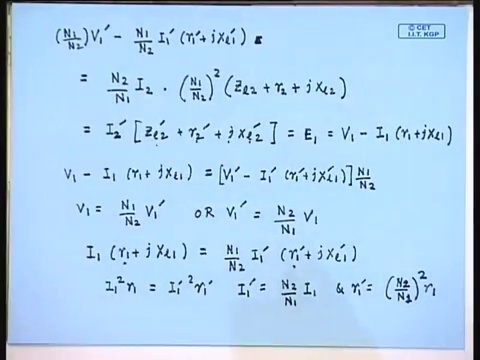 (N1/N2)V1′ − N1/N2 I1′ (r1′+jxl1′)
© CET
I.I.T. KGP
= N2/N1 I2 · (N1/N2)² (Zl2 + r2 + jxl2)
= I2′ [Zl2′ + r2′ + jxl2′] = E1 = V1 − I1 (r1+jxl1)
V1 − I1 (r1+jxl1) = [V1′ − I1′ (r1′+jxl1′)] N1/N2
V1 = N1/N2 V1′ OR V1′ = N2/N1 V1
I1 (r1+jxl1) = N1/N2 I1′ (r1′+jxl1′)
I1²r1 = I1′²r1′ I1′ = N2/N1 I1 & r1′ = (N2/N1)² r1